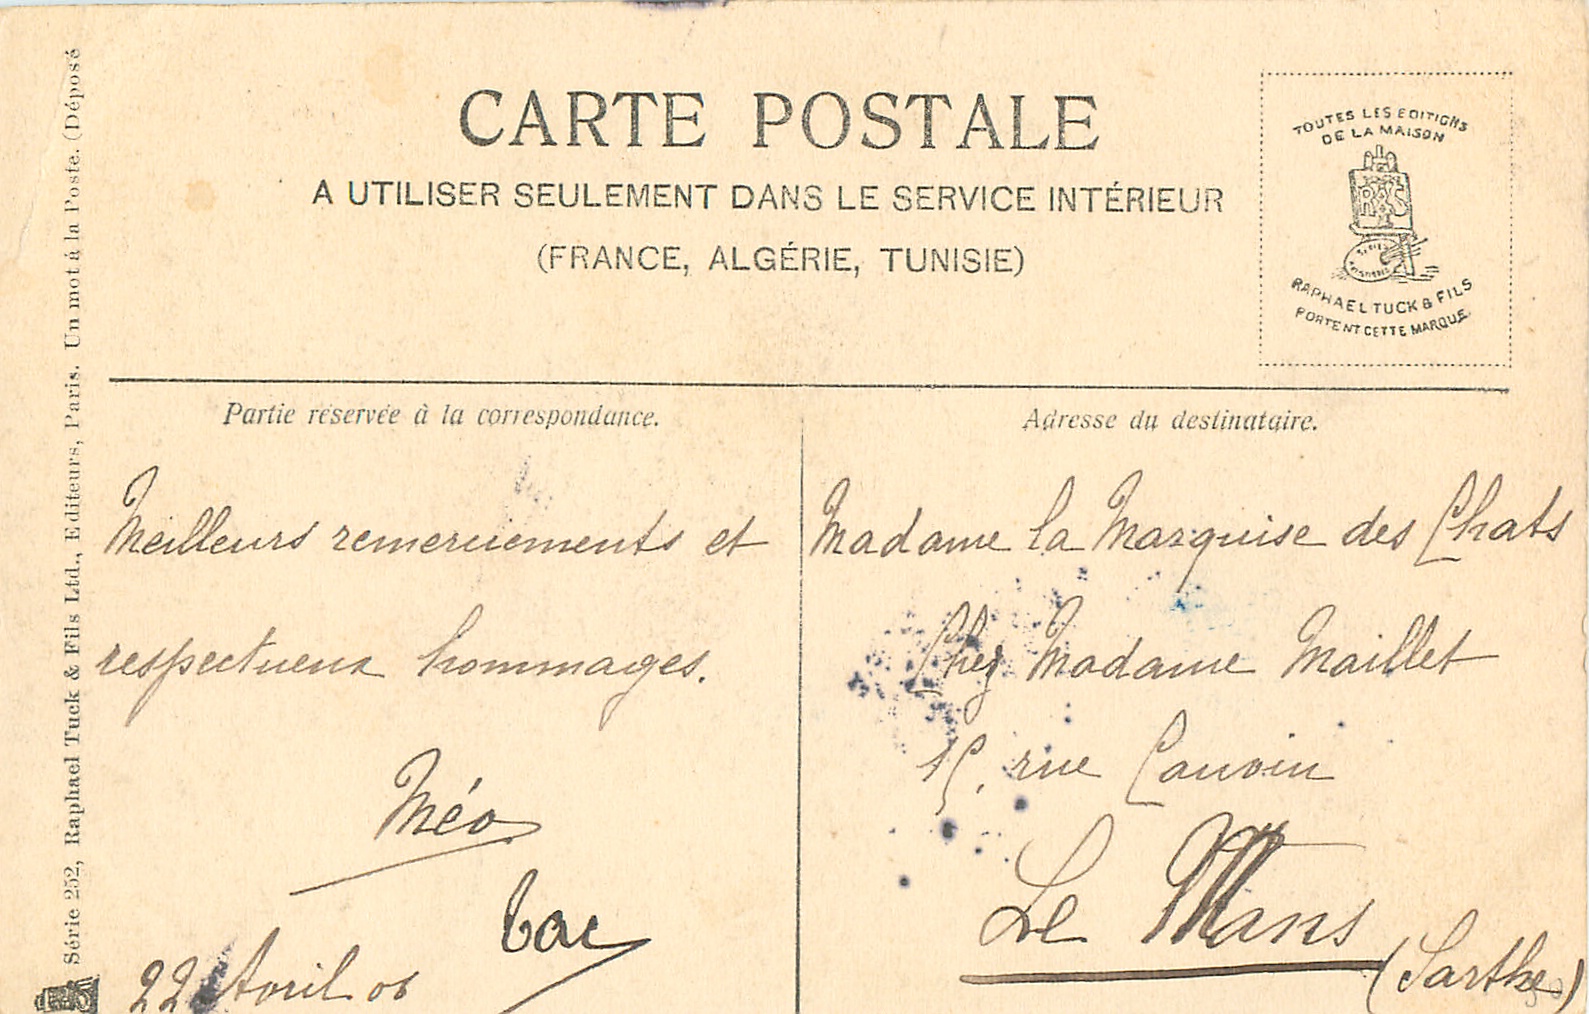 CARTE POSTALE
A UTILISER SEULEMENT DANS LE SERVICE INTÉRIEUR
(FRANCE, ALGÉRIE, TUNISIE)
TOUTES LES EDITIONS
DE LA MAISON
R&S
RAPHAEL TUCK & FILS
PORTENT CETTE MARQUE
Série 252, Raphael Tuck & Fils Ltd., Editeurs, Paris. Un mot à la Poste. (Déposé
Partie réservée à la correspondance.
Meilleurs remerciements et
respectueux hommages.
Méo
22 Avril 06
Adresse du destinataire.
Madame la Marquise des Chats
Chez Madame Maillet
15, rue Cauvin
Le Mans
(Sarthe)